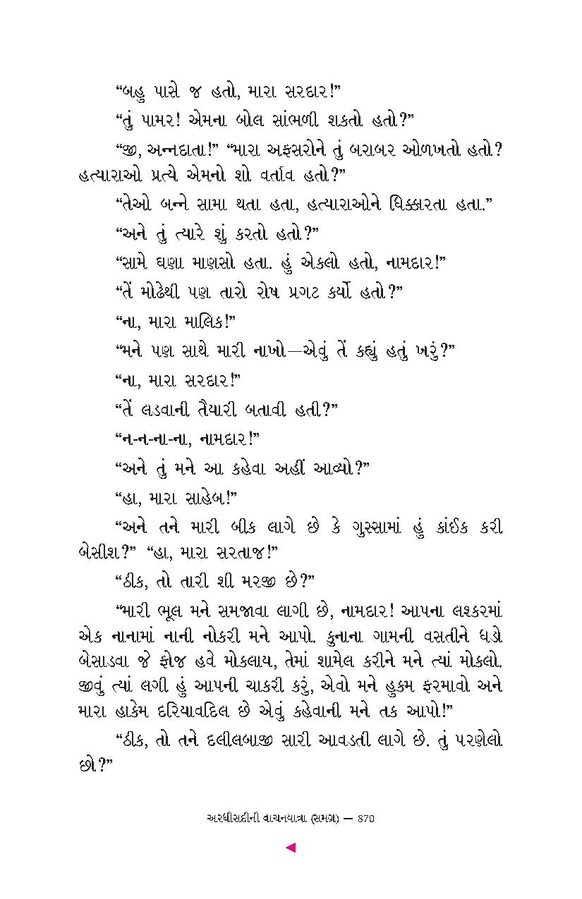 “બહુ પાસે જ હતો, મારા સરદાર!”
“તું પામર! એમના બોલ સાંભળી શકતો હતો?”
“જી, અન્નદાતા!” “મારા અફસરોને તું બરાબર ઓળખતો હતો?
હત્યારાઓ પ્રત્યે એમનો શો વર્તાવ હતો?”
“તેઓ બન્ને સામા થતા હતા, હત્યારાઓને ધિક્કારતા હતા.”
“અને તું ત્યારે શું કરતો હતો?”
“સામે ઘણા માણસો હતા. હું એકલો હતો, નામદાર!”
“તેં મોઢેથી પણ તારો રોષ પ્રગટ કર્યો હતો?”
“ના, મારા માલિક!”
“મને પણ સાથે મારી નાખો—એવું તેં કહ્યું હતું ખરું?”
“ના, મારા સરદાર!”
“તેં લડવાની તૈયારી બતાવી હતી?”
“ન-ન-ના-ના, નામદાર!”
“અને તું મને આ કહેવા અહીં આવ્યો?”
“હા, મારા સાહેબ!”
“અને તને મારી બીક લાગે છે કે ગુસ્સામાં હું કાંઈક કરી
બેસીશ?” “હા, મારા સરતાજ!”
“ઠીક, તો તારી શી મરજી છે?”
“મારી ભૂલ મને સમજાવા લાગી છે, નામદાર! આપના લશ્કરમાં
એક નાનામાં નાની નોકરી મને આપો. કુનાના ગામની વસતીને ધડો
બેસાડવા જે ફોજ હવે મોકલાય, તેમાં શામેલ કરીને મને ત્યાં મોકલો.
જીવું ત્યાં લગી હું આપની ચાકરી કરું, એવો મને હુકમ ફરમાવો અને
મારા હાકેમ દરિયાવદિલ છે એવું કહેવાની મને તક આપો!”
“ઠીક, તો તને દલીલબાજી સારી આવડતી લાગે છે. તું પરણેલો
છો?”
અરધીસદીની વાચનયાત્રા (સમગ્ર) — 870